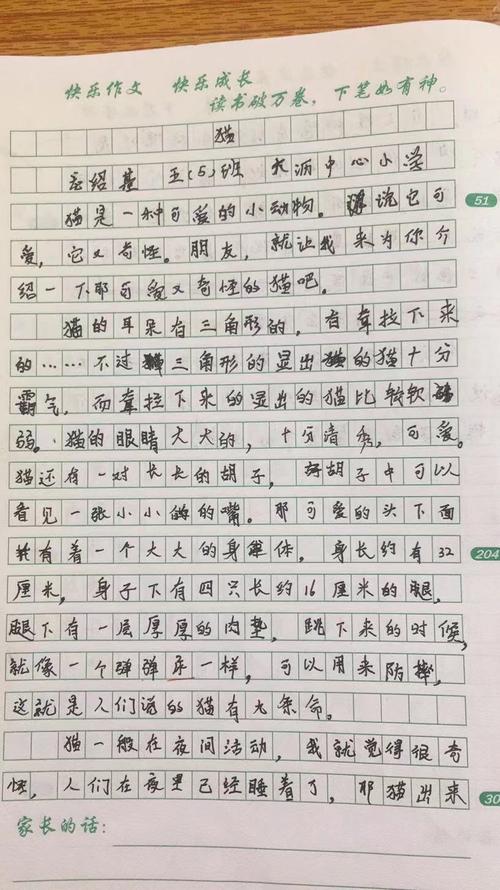 快乐作文 快乐成长
读书破万卷，下笔如有神。
猫
绍基 五(5)班 大沥中心小学
猫是一种可爱的小动物。说它可
51
爱，它又奇怪。朋友，就让我来为你介
绍一下那可爱又奇怪的猫吧。
猫的耳朵有三角形的，有耷拉下来
的……不过三角形的显出的猫十分
霸气，而耷拉下来的显出的猫比较软
弱。猫的眼睛大大的，十分清秀，可爱。
猫还有一对长长的胡子，胡子中可以
看见一张小小的嘴。那可爱的头下面
有着一个大大的身体，身长约有32
204
厘米，身子下有四只长约16厘米的腿，
腿下有一层厚厚的肉垫，跳下来的时候，
就像一个弹弹乐一样，可以用来防摔，
这就是人们说的猫有九条命。
猫一般在夜间活动，我就觉得很奇
怪，人们在夜里已经睡着了，那猫出来
30
家长的话：